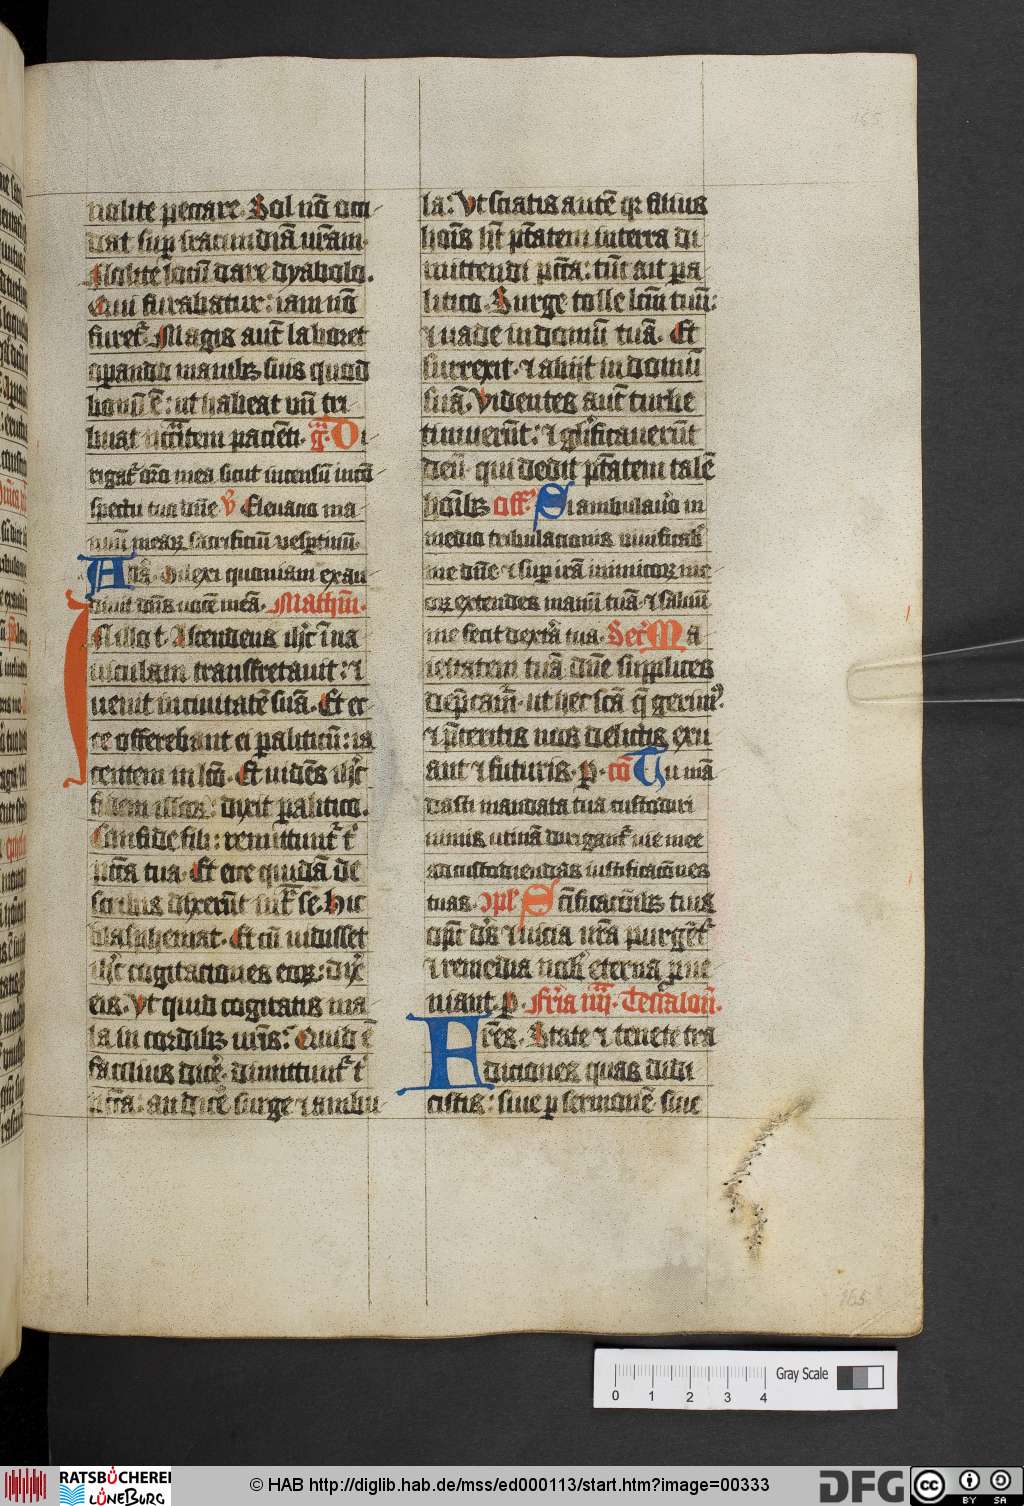 165
nolite peccare. Sol nō occi
dat sup̱ iracundiā vr̄am.
Nolite locū dare dyabolo.
Qui furabatur: iam nō
furet᷑. Magis aut̄ laboret
operando manib᷒ suis quod
bonū ē: ut habeat vn̄ tri
buat ncc̄itatem pacienti. gͣ. Di
rigat᷑ or̄o mea sicut incensū in cō
spectu tuo dn̄e V Eleuacio ma
nuū mearꝝ sacrificiū vesp̱tinū.
All̄a. Dilexi quoniam exau
diuit dn̄s vocē meā. Math̄m.
In illo t. Ascendens ih̄c in na
uiculam transfretauit: ⁊
uenit in ciuitatē suā. Et ec
ce offerebant ei paliticū: ia
centem in lc̄o. Et uidēs ih̄c
fidem illorꝝ: dixit palitico.
Confide fili: remittunt᷑ tⁱ
pcc̄a tua. Et ecce quidā de
scribis dixerūt int᷑ se. hic
blasphemat. Et cū uidisset
ih̄c cogitaciones eorꝝ: dix̄
eis. Vt quid cogitatis ma
la in cordib᷒ vr̄is: Quid ē
facilius dicē. dimittunt᷑ tⁱ
pcc̄a: an dicē surge ⁊ ambu
la: Vt sciatis autē qꝛ filius
hoīs ht̄ pt̄atem in terra di
mittendi pcc̄a: tūc ait pa
litico. Surge tolle lc̄m tuū:
⁊ uade in domū tuā. Et
surrexit. ⁊ abijt in domū
suā. Videntes aut̄ turbe
timuerūt: ⁊ gl̄ificauerūt
deū. qui dedit pt̄atem talē
hoīb᷒ Off̄. Si ambulauo in
medio tribulacionis uiuificab̄
me dn̄e. ⁊ sup̱ irā inimicorꝝ me
orꝝ extendes manū tuā. ⁊ saluū
me fecit dextā tua. Secr̄ Ma
iestatem tuā dn̄e supplices
dep̄cam̄. ut hec scā q̄ gerim᷒.
⁊ p̄teritis nos delictis exu
ant ⁊ futuris. p. cō Tu mā
dasti mandata tua custodiri
nimis utinā dirigant᷑ uie mee
ad custodiendas iustificacōnes
tuas. ꝯpl̄ Sc̄ificacōnib᷒ tuis
op̄c d̄s ⁊ uicia nr̄a purgēt᷑
⁊ remedia nob̄ eterna p̱ue
niant. p. Fr̄ia iiij. Tessaloñ.
Fr̄es. State ⁊ tenete tra
diciones quas didi
cistis: siue p̱ sermonē. siue
165
Gray Scale
0 1 2 3 4
RATSBÜCHEREI
LÜNEBURG
© HAB http://diglib.hab.de/mss/ed000113/start.htm?image=00333
DFG
cc BY SA